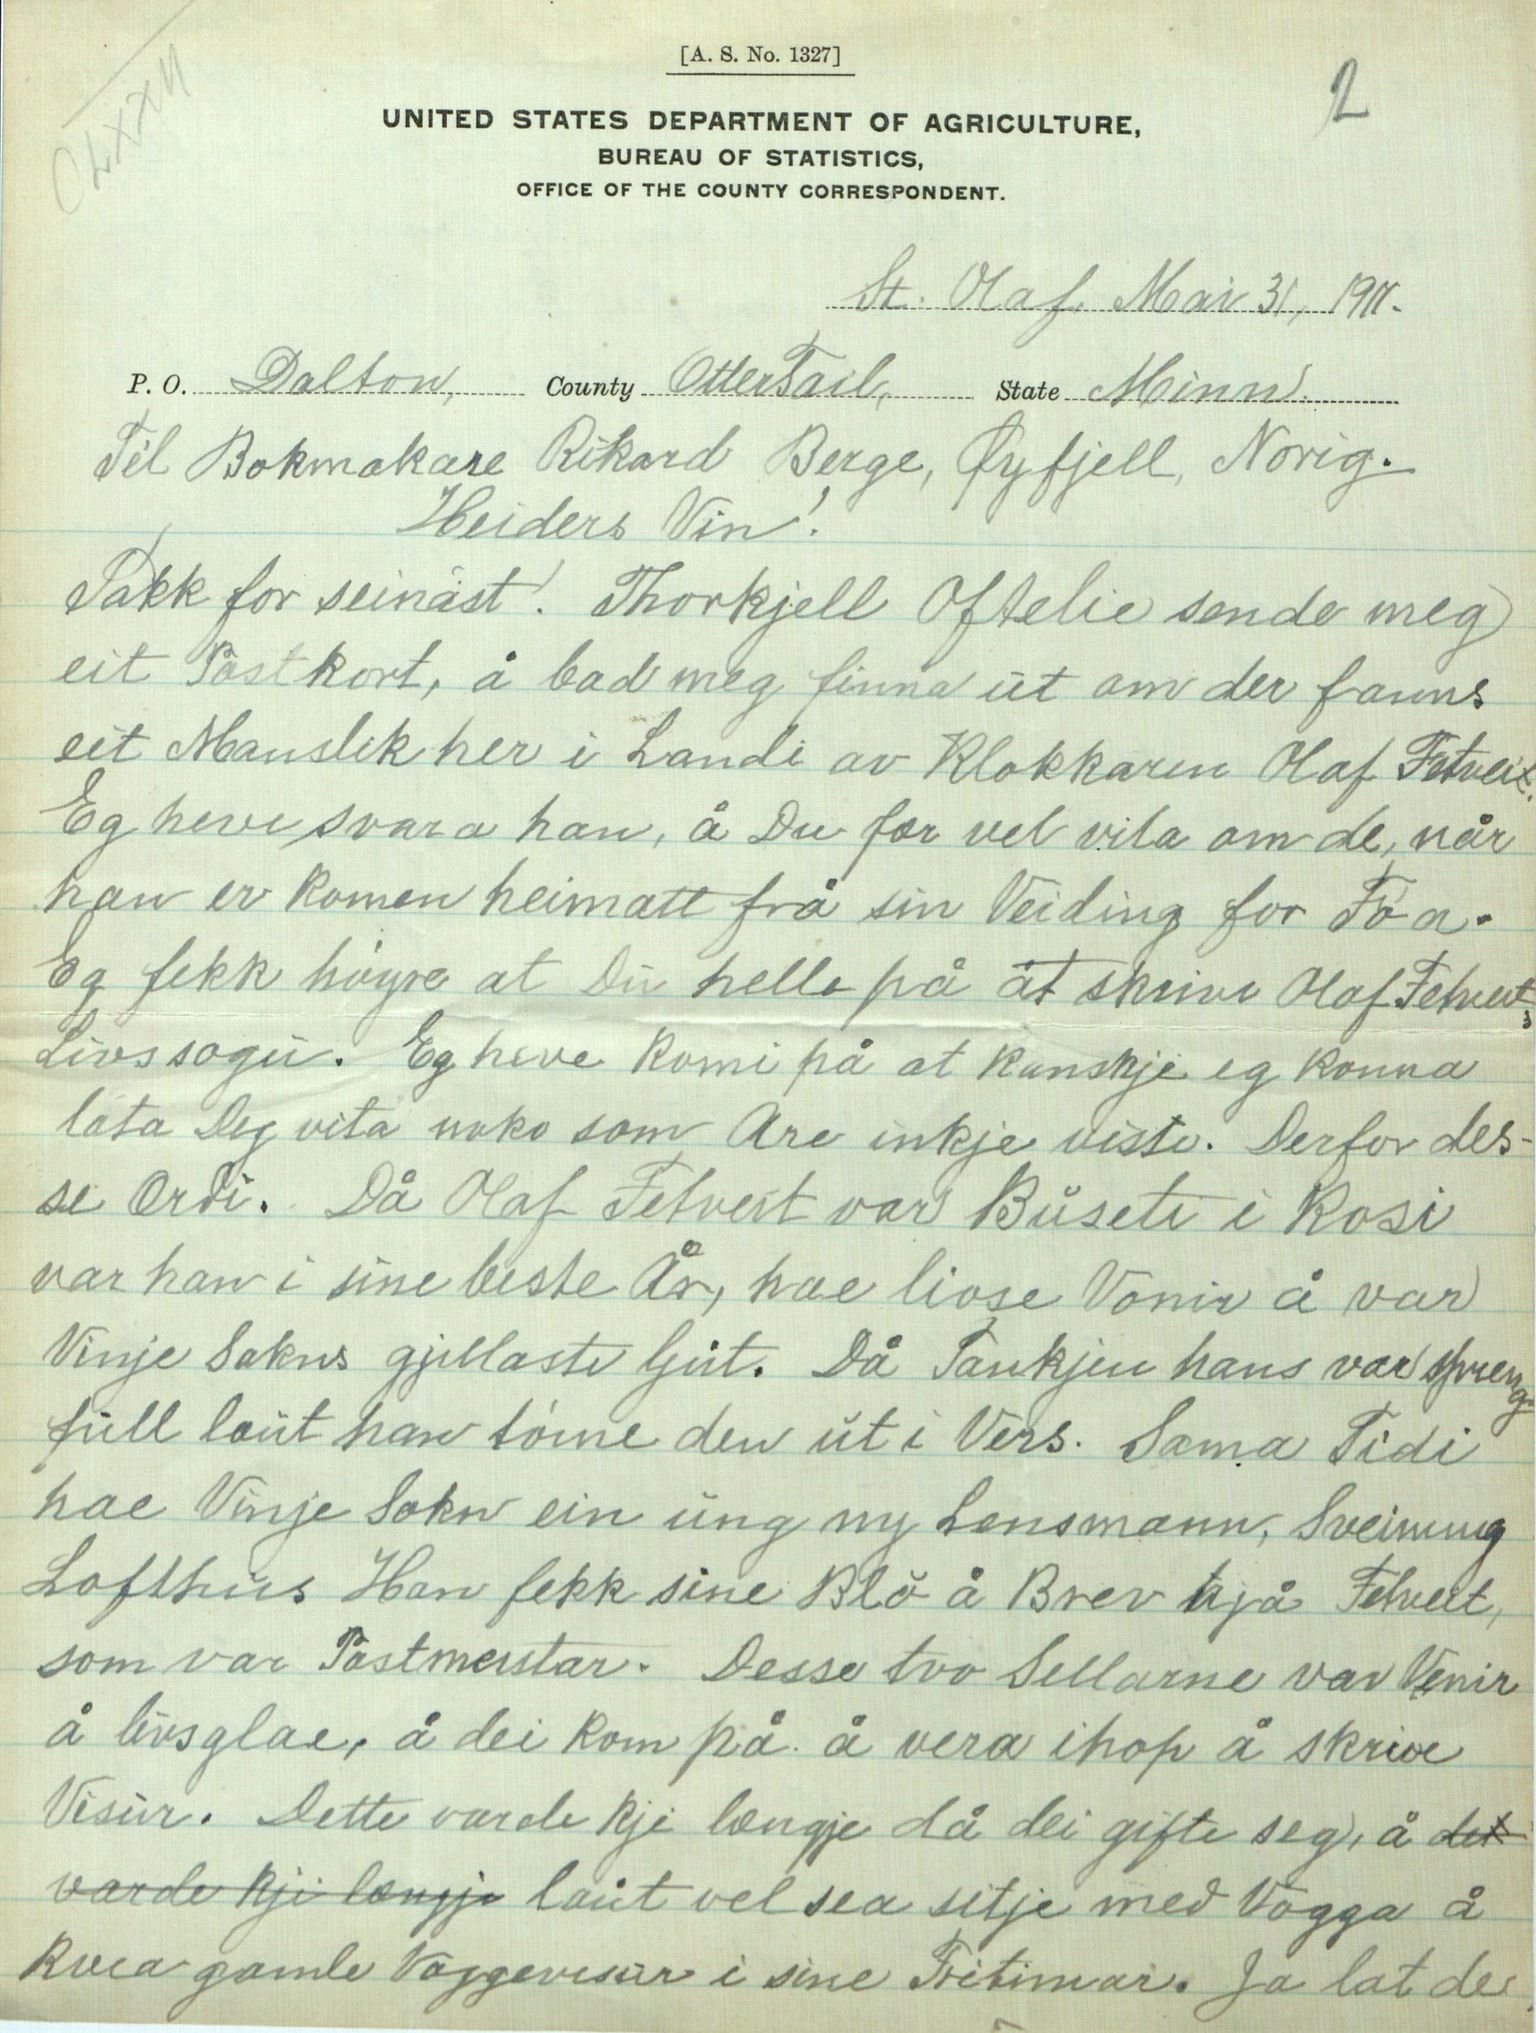 [A. S. No. 1327]
2
CLXXII
UNITED STATES DEPARTMENT OF AGRICULTURE,
BUREAU OF STATISTICS,
OFFICE OF THE COUNTY CORRESPONDENT.
St. Olaf. Mar 31, 1911.
P. O. Dalton, County OtterTail, State Minn.
Til Bokmakare Rikard Berge, Øyfjell, Norig.
Heiders Vin!
Takk for seinást! Thorkjell Oftelie sende meg
eit Póstkort, å bad meg finna út om der fanns
eit Manslik her i Landi av Klokkaren Olaf Fetveit.
Eg heve svara han, å Du fær vel vita om de, når
han er komen heimatt frå sin Veiding for Fôa.
Eg fekk höyre at Dú helle på åt skrive Olaf Fetveits
Livssogú. Eg heve komi på at kanskje eg konna
láta Deg vita noko som Are inkje viste. Derfor des-
se Ordi. Då Olaf Fetveit var Búsete i Kosi
var han i sine beste År, hae liose Vonir å var
Vinje Sokns gjillaste Gút. Då Tankjen hans var spreng
full laút han tóme den út i Vers. Sama Tidi
hae Vinje Sokn ein úng ny Lensmann, Sveinung
Lofthús Han fekk sine Blö å Brev hjå Fetveit,
som var Póstmeistar. Desse tvo Sellarne var Venir
å livsglae, å dei kom på å vera ihop å skrive
Visúr. Dette varde kje længje då dei gifte seg, å det
varde kje længje laút vel sea sitje med Vogga å
kvea gamle Voggevisúr i sine Fritimar. Ja lat de